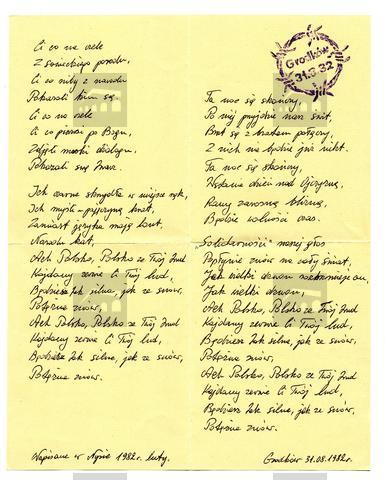 Ci co na czele
Z sowieckiego porodu,
Ci co niby z narodu
Pokazali kim są.
Ci co na czele
Ci co piersi po Bogu,
Zdjęli maski dialogu,
Pokazali swą twarz.
Ich czarne skrzydła w miejsce rąk,
Ich myśli
Zamiast języka mają knut.
Narodu kat,
Ach Polsko, Polsko ze Twój trud
Kajdany zerwie Ci Twój lud,
Będziesz tak silna, jak ze snów,
Potężna znów,
Ach Polsko, Polsko ze Twój trud
Kajdany zerwie Ci Twój lud,
Będziesz tak silna, jak ze snów,
Potężna znów.
Napisane w Nysie 1982r. luty.
Grodków
31.8.82
Ta noc się skończy,
Po niej przyjdzie nasz świt,
Brat się z bratem połączy,
Z nich nie będzie już nikt.
Ta noc się skończy,
Wstanie dzień nad Ojczyzną,
Rany zarosną blizną,
Będzie wolności czas.
Solidarności nowy głos
Popłynie znów na cały świat,
Jak wielki dzwon
Jak wielki dzwon,
Ach Polsko, Polsko ze Twój trud
Kajdany zerwie Ci Twój lud,
Będziesz tak silna, jak ze snów,
Potężna znów.
Ach Polsko, Polsko ze Twój trud
Kajdany zerwie Ci Twój lud,
Będziesz tak silna, jak ze snów,
Potężna znów.
Grodków 31.08.1982r.